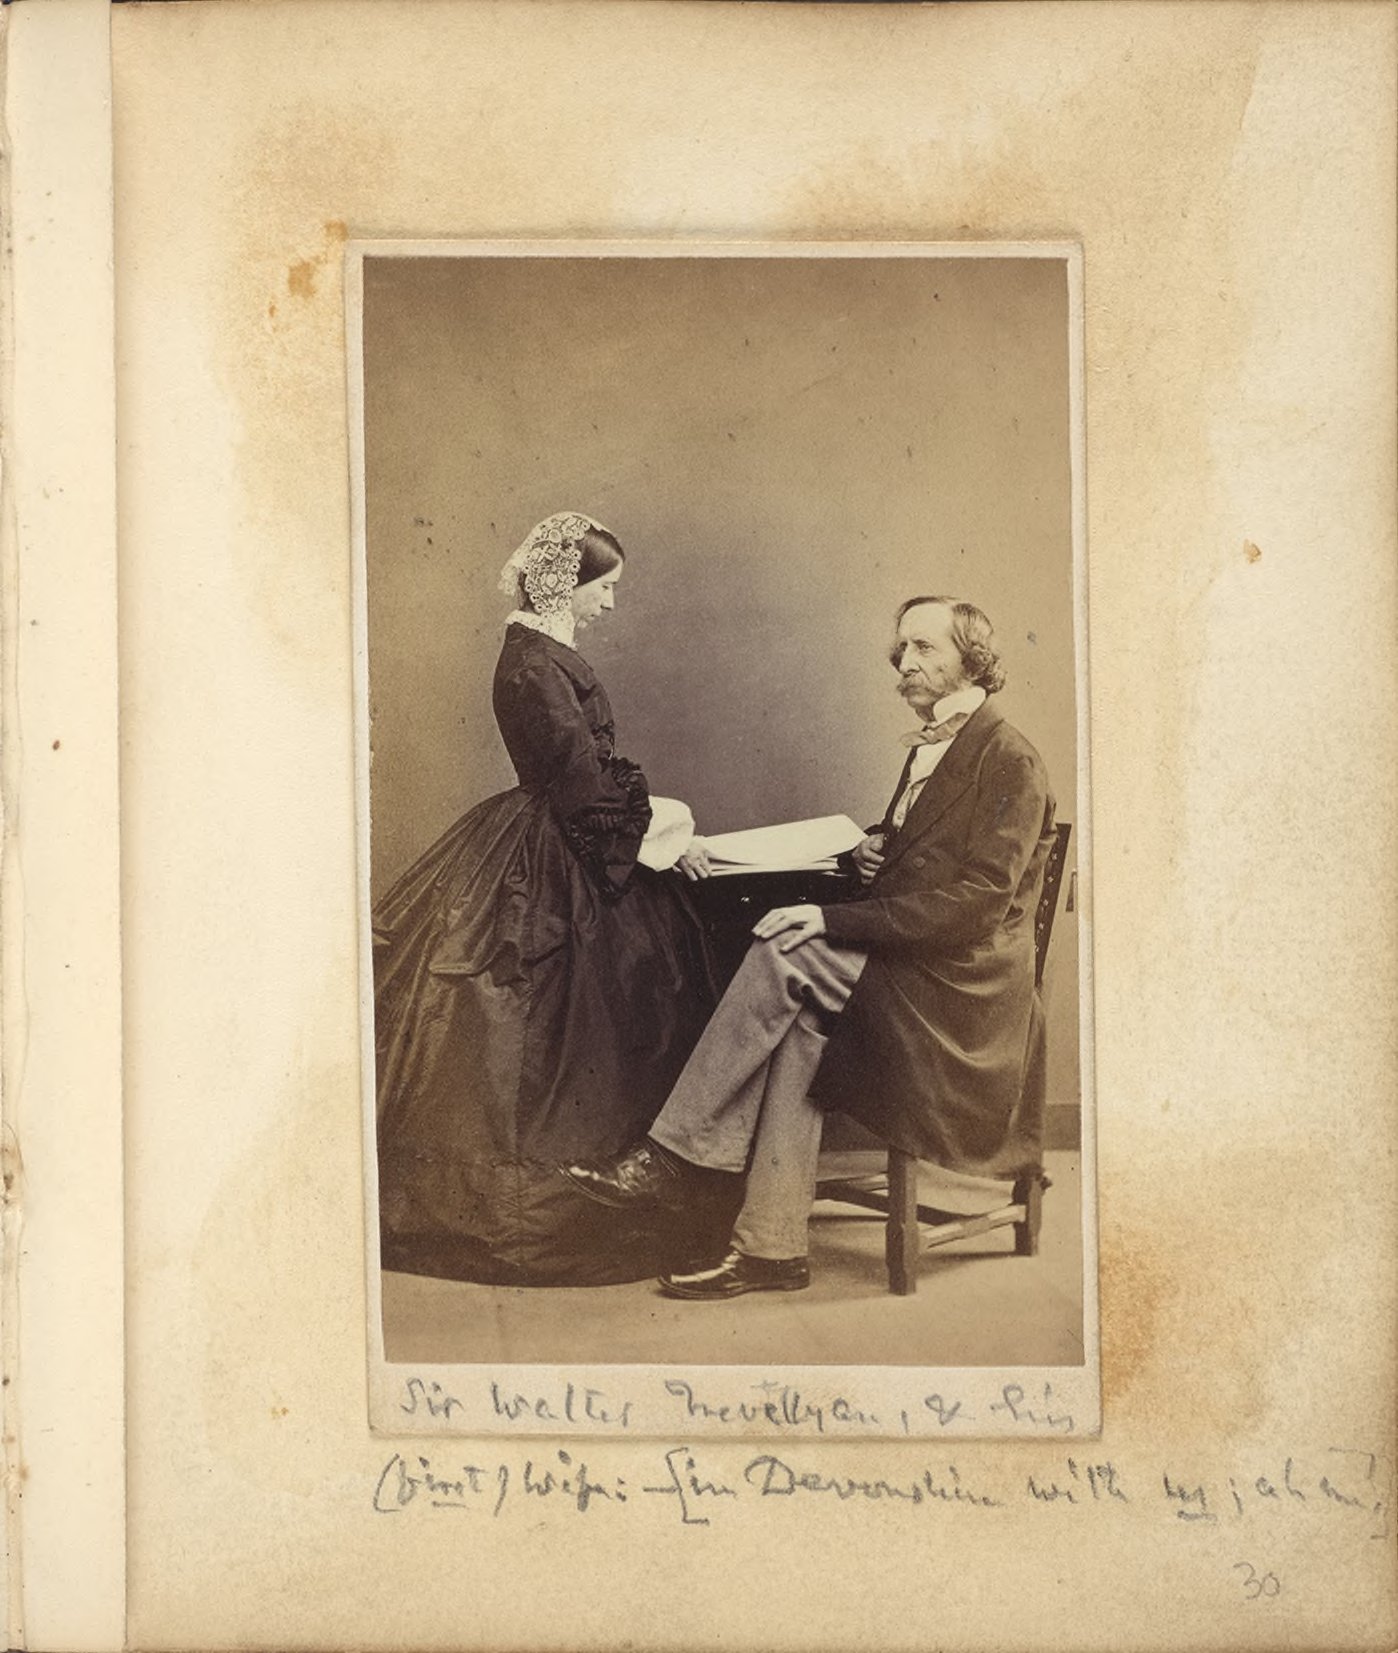 Sir Walter Trevellyan, & his
(first) wife: –[in Devonshire with us; ah me!]
30